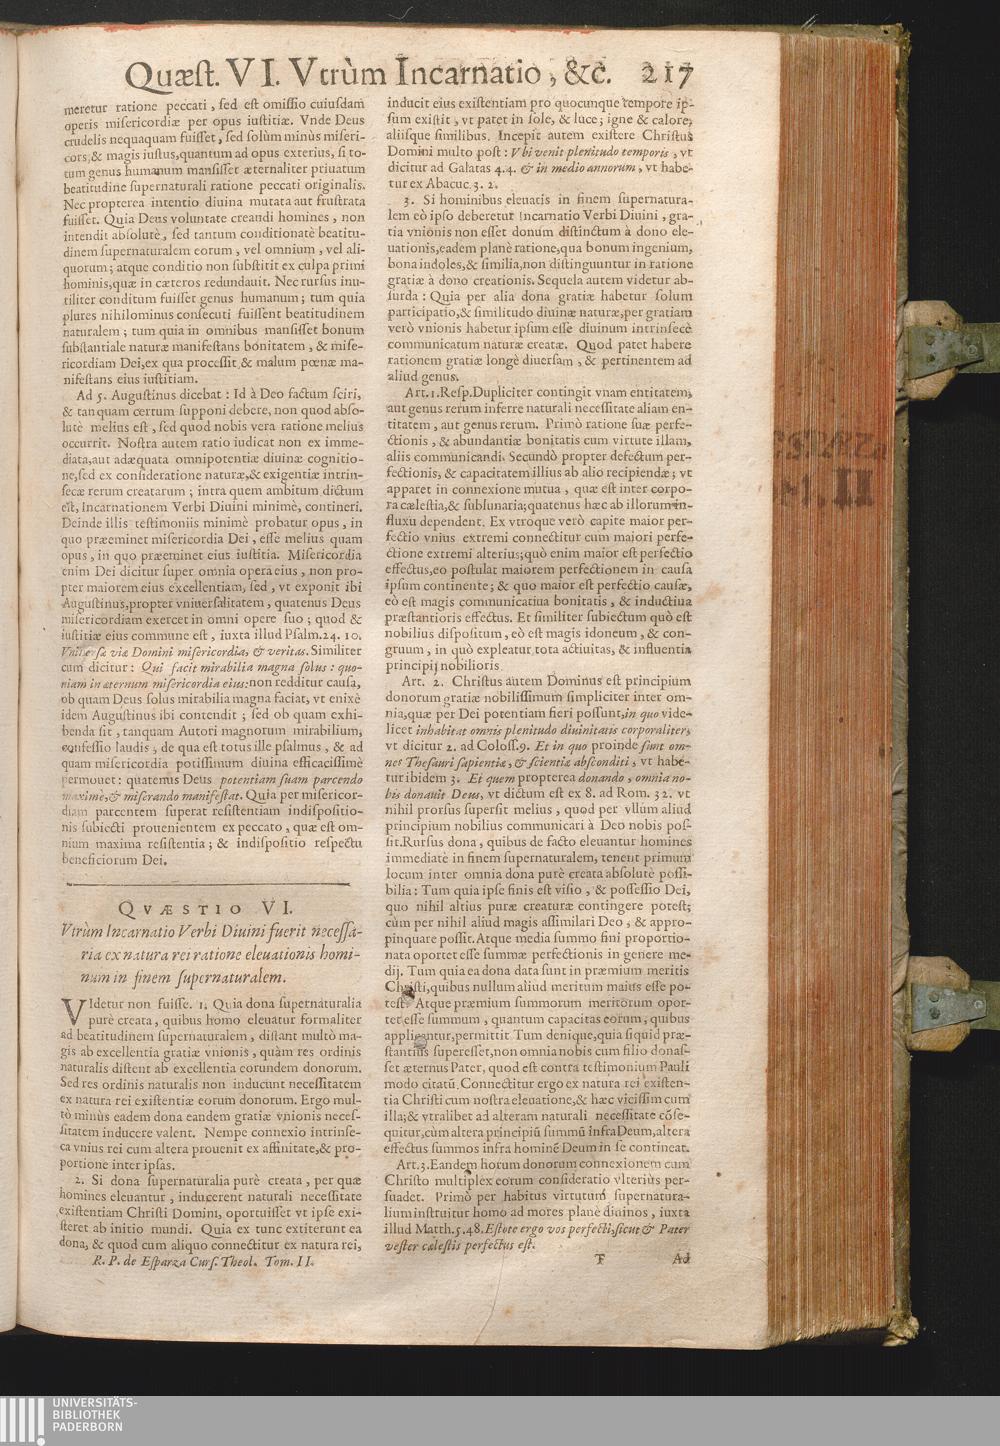 Quæst. VI. Vtrùm Incarnatio, &c. 217
meretur ratione peccati, sed est omissio cuiusdam
operis misericordiæ per opus iustitiæ. Vnde Deus
crudelis nequaquam fuisset, sed solùm minùs miseri-
cors, & magis iustus, quantum ad opus exterius, si to-
tum genus humanum mansisset æternaliter priuatum
beatitudine supernaturali ratione peccati originalis.
Nec propterea intentio diuina mutata aut frustrata
fuisset. Quia Deus voluntate creandi homines, non
intendit absolutè, sed tantum conditionatè beatitu-
dinem supernaturalem eorum, vel omnium, vel ali-
quorum; atque conditio non substitit ex culpa primi
hominis, quæ in cæteros redundauit. Nec rursus inu-
tiliter conditum fuisset genus humanum; tum quia
plures nihilominus consecuti fuissent beatitudinem
naturalem; tum quia in omnibus mansisset bonum
substantiale naturæ manifestans bonitatem, & mise-
ricordiam Dei, ex qua processit & malum pœnæ ma-
nifestans eius iustitiam.
Ad 5. Augustinus dicebat: Id à Deo factum sciri,
& tanquam certum supponi debere, non quod abso-
lutè melius est, sed quod nobis vera ratione melius
occurrit. Nostra autem ratio iudicat non ex imme-
diata, aut adæquata omnipotentiæ diuinæ cognitio-
ne, sed ex consideratione naturæ, & exigentiæ intrin-
secæ rerum creatarum; intra quem ambitum dictum
est, Incarnationem Verbi Diuini minimè, contineri.
Deinde illis testimoniis minimè probatur opus, in
quo præeminet misericordia Dei, esse melius quam
opus, in quo præeminet eius iustitia. Misericordia
enim Dei dicitur super omnia opera eius, non pro-
pter maiorem eius excellentiam, sed, vt exponit ibi
Augustinus, propter vniuersalitatem, quatenus Deus
misericordiam exercet in omni opere suo; quod &
iustitiæ eius commune est, iuxta illud Psalm. 24. 10.
Vniuersæ viæ Domini misericordia, & veritas. Similiter
cum dicitur: Qui facit mirabilia magna solus: quo-
niam in æternum misericordia eius: non redditur causa,
ob quam Deus solus mirabilia magna faciat, vt enixè
idem Augustinus ibi contendit; sed ob quam exhi-
benda sit, tanquam Autori magnorum mirabilium,
confessio laudis, de qua est totus ille psalmus, & ad
quam misericordia potissimum diuina efficacissimè
permouet: quatenus Deus potentiam suam parcendo
maximè, & miserando manifestat. Quia per misericor-
diam parcentem superat resistentiam indispositio-
nis subiecti prouenientem ex peccato, quæ est om-
nium maxima resistentia; & indispositio respectu
beneficiorum Dei.
QVÆSTIO VI.
Vtrùm Incarnatio Verbi Diuini fuerit necessa-
ria ex natura rei ratione eleuationis homi-
num in finem supernaturalem.
VIdetur non fuisse. 1. Quia dona supernaturalia
purè creata, quibus homo eleuatur formaliter
ad beatitudinem supernaturalem, distant multò ma-
gis ab excellentia gratiæ vnionis, quàm res ordinis
naturalis distent ab excellentia eorundem donorum.
Sed res ordinis naturalis non inducunt necessitatem
ex natura rei existentiæ eorum donorum. Ergo mul-
tò minùs eadem dona eandem gratiæ vnionis neces-
sitatem inducere valent. Nempe connexio intrinse-
ca vnius rei cum altera prouenit ex affinitate, & pro-
portione inter ipsas.
2. Si dona supernaturalia purè creata, per quæ
homines eleuantur, inducerent naturali necessitate
existentiam Christi Domini, oportuisset vt ipse exi-
steret ab initio mundi. Quia ex tunc extiterunt ea
dona, & quod cum aliquo connectitur ex natura rei,
R. P. de Esparza Curs. Theol. Tom. II.
inducit eius existentiam pro quocunque tempore ip-
sum existit, vt patet in sole, & luce; igne & calore,
aliisque similibus. Incepit autem existere Christus
Domini multo post: Vbi venit plenitudo temporis, vt
dicitur ad Galatas 4. 4. & in medio annorum, vt habe-
tur ex Abacuc 3. 2.
3. Si hominibus eleuatis in finem supernatura-
lem eò ipso deberetur Incarnatio Verbi Diuini, gra-
tia vnionis non esset donum distinctum à dono ele-
uationis, eadem planè ratione, qua bonum ingenium,
bona indoles, & similia, non distinguuntur in ratione
gratiæ à dono creationis. Sequela autem videtur ab-
surda: Quia per alia dona gratiæ habetur solum
participatio, & similitudo diuinæ naturæ, per gratiam
verò vnionis habetur ipsum esse diuinum intrinsecè
communicatum naturæ creatæ. Quod patet habere
rationem gratiæ longè diuersam, & pertinentem ad
aliud genus.
Art. 1. Resp. Dupliciter contingit vnam entitatem,
aut genus rerum inferre naturali necessitate aliam en-
titatem, aut genus rerum. Primò ratione suæ perfe-
ctionis, & abundantiæ bonitatis cum virtute illam,
aliis communicandi. Secundò propter defectum per-
fectionis, & capacitatem illius ab alio recipiendæ; vt
apparet in connexione mutua, quæ est inter corpo-
ra cælestia, & sublunaria; quatenus hæc ab illorum in-
fluxu dependent. Ex vtroque verò capite maior per-
fectio vnius extremi connectitur cum maiori perfe-
ctione extremi alterius; quò enim maior est perfectio
effectus, eo postulat maiorem perfectionem in causa
ipsum continente; & quo maior est perfectio causæ,
eò est magis communicatiua bonitatis, & inductiua
præstantioris effectus. Et similiter subiectum quò est
nobilius dispositum, eò est magis idoneum, & con-
gruum, in quò expleatur tota actiuitas, & influentia
principij nobilioris.
Art. 2. Christus autem Dominus est principium
donorum gratiæ nobilissimum simpliciter inter om-
nia, quæ per Dei potentiam fieri possunt, in quo vide-
licet inhabitat omnis plenitudo diuinitatis corporaliter,
vt dicitur 2. ad Coloss. 9. Et in quo proinde sunt om-
nes Thesauri sapientiæ, & scientiæ absconditi, vt habe-
tur ibidem 3. Ei quem propterea donando, omnia no-
bis donauit Deus, vt dictum est ex 8. ad Rom. 32. vt
nihil prorsus supersit melius, quod per vllum aliud
principium nobilius communicari à Deo nobis pos-
sit. Rursus dona, quibus de facto eleuantur homines
immediatè in finem supernaturalem, tenent primum
locum inter omnia dona purè creata absolutè possi-
bilia: Tum quia ipse finis est visio, & possessio Dei,
quo nihil altius puræ creaturæ contingere potest;
cùm per nihil aliud magis assimilari Deo, & appro-
pinquare possit. Atque media summo fini proportio-
nata oportet esse summæ perfectionis in genere me-
dij. Tum quia ea dona data sunt in præmium meritis
Christi, quibus nullum aliud meritum maius esse po-
test. Atque præmium summorum meritorum opor-
tet esse summum, quantum capacitas eorum, quibus
applicantur, permittit Tum denique, quia siquid præ-
stantius superesset, non omnia nobis cum filio donas-
set æternus Pater, quod est contra testimonium Pauli
modo citatū. Connectitur ergo ex natura rei existen-
tia Christi cum nostra eleuatione, & hæc vicissim cum
illa; & vtralibet ad alteram naturali necessitate cōse-
quitur, cùm altera principiū summū infra Deum, altera
effectus summos infra hominē Deum in se contineat.
Art. 3. Eandem horum donorum connexionem cum
Christo multiplex eorum consideratio vlterius per-
suadet. Primò per habitus virtutum supernatura-
lium instruitur homo ad mores planè diuinos, iuxta
illud Matth. 5. 48. Estote ergo vos perfecti, sicut & Pater
vester cælestis perfectus est.
T Ad
ESPARZA
II
UNIVERSITÄTS-
BIBLIOTHEK
PADERBORN